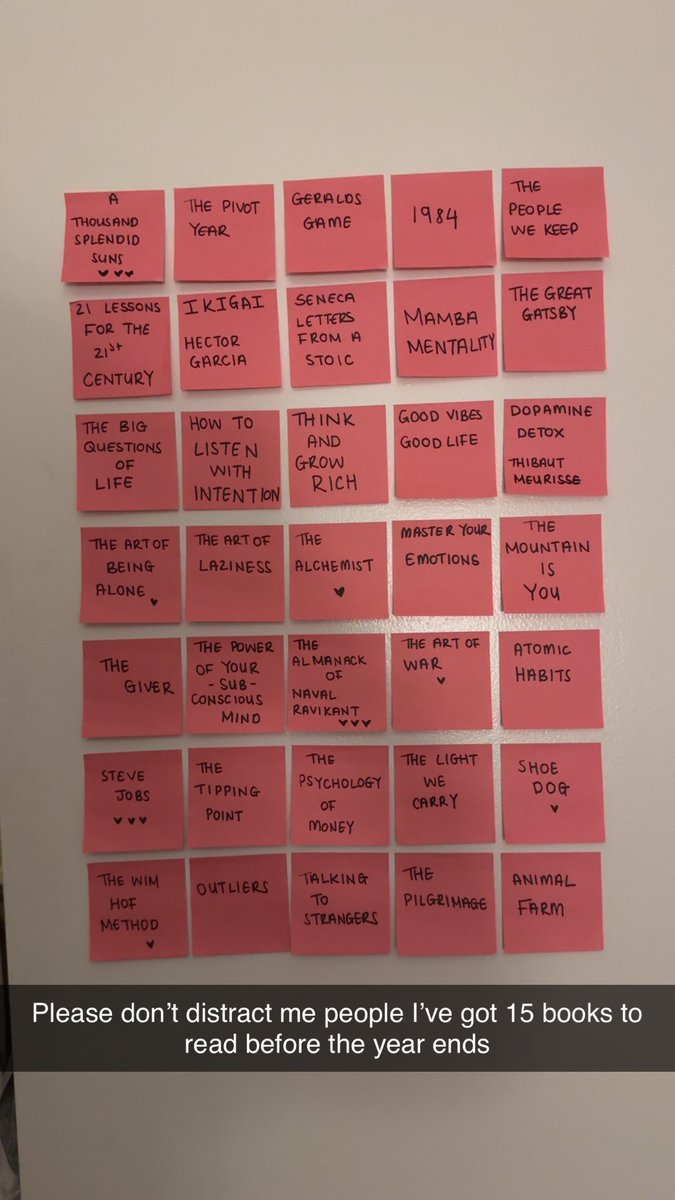 A
THOUSAND
SPLENDID
SUNS
THE PIVOT
YEAR
GERALDS
GAME
1984
THE
PEOPLE
WE KEEP
21 LESSONS
FOR THE
21st
CENTURY
IKIGAI
HECTOR
GARCIA
SENECA
LETTERS
FROM A
STOIC
MAMBA
MENTALITY
THE GREAT
GATSBY
THE BIG
QUESTIONS
OF
LIFE
HOW TO
LISTEN
WITH
INTENTION
THINK
AND
GROW
RICH
GOOD VIBES
GOOD LIFE
DOPAMINE
DETOX
THIBAUT
MEURISSE
THE ART OF
BEING
ALONE
THE ART OF
LAZINESS
THE
ALCHEMIST
MASTER YOUR
EMOTIONS
THE
MOUNTAIN
IS
YOU
THE
GIVER
THE POWER
OF YOUR
- SUB -
CONSCIOUS
MIND
THE
ALMANACK
OF
NAVAL
RAVIKANT
THE ART OF
WAR
ATOMIC
HABITS
STEVE
JOBS
THE
TIPPING
POINT
THE
PSYCHOLOGY
OF
MONEY
THE LIGHT
WE
CARRY
SHOE
DOG
THE WIM
HOF
METHOD
OUTLIERS
TALKING
TO
STRANGERS
THE
PILGRIMAGE
ANIMAL
FARM
Please don’t distract me people I’ve got 15 books to
read before the year ends